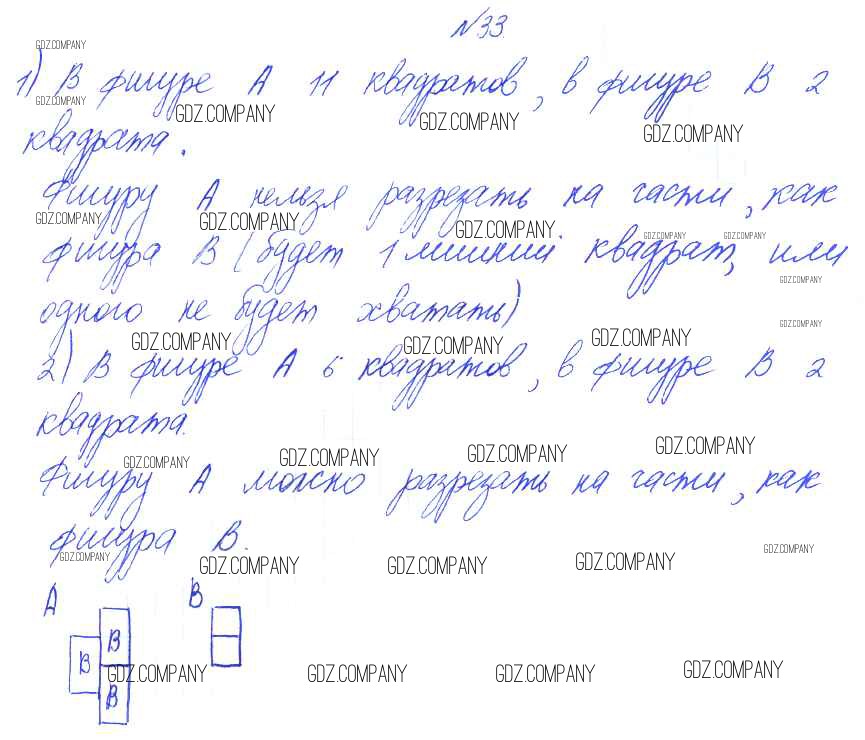 №33.
GDZ.COMPANY
1) В фигуре А 11 квадратов, в фигуре В 2
GDZ.COMPANY GDZ.COMPANY GDZ.COMPANY GDZ.COMPANY
квадрата.
Фигуру А нельзя разрезать на части, как
GDZ.COMPANY GDZ.COMPANY GDZ.COMPANY GDZ.COMPANY GDZ.COMPANY
фигура В (будет 1 лишний квадрат, или
GDZ.COMPANY
одного не будет хватать)
GDZ.COMPANY
GDZ.COMPANY GDZ.COMPANY GDZ.COMPANY
2) В фигуре А 6 квадратов, в фигуре В 2
квадрата.
GDZ.COMPANY GDZ.COMPANY GDZ.COMPANY GDZ.COMPANY
Фигуру А можно разрезать на части, как
фигура В.
GDZ.COMPANY GDZ.COMPANY GDZ.COMPANY GDZ.COMPANY GDZ.COMPANY
А В
В
В
В
GDZ.COMPANY GDZ.COMPANY GDZ.COMPANY GDZ.COMPANY